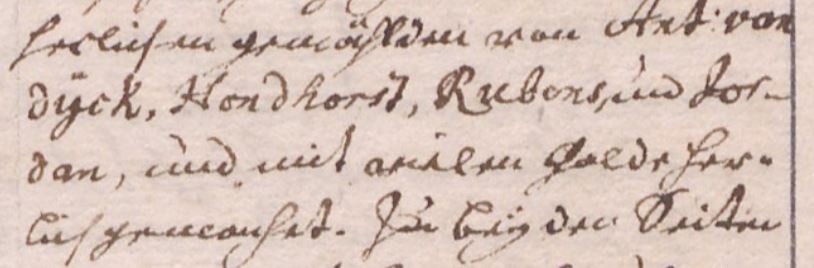 herlichen gemählden von Ant: van
dÿck, Hondhorst, Rubens, und Jor-
dan, und mit vielen Golde her-
lich gemachet. Zu beÿden Seiten